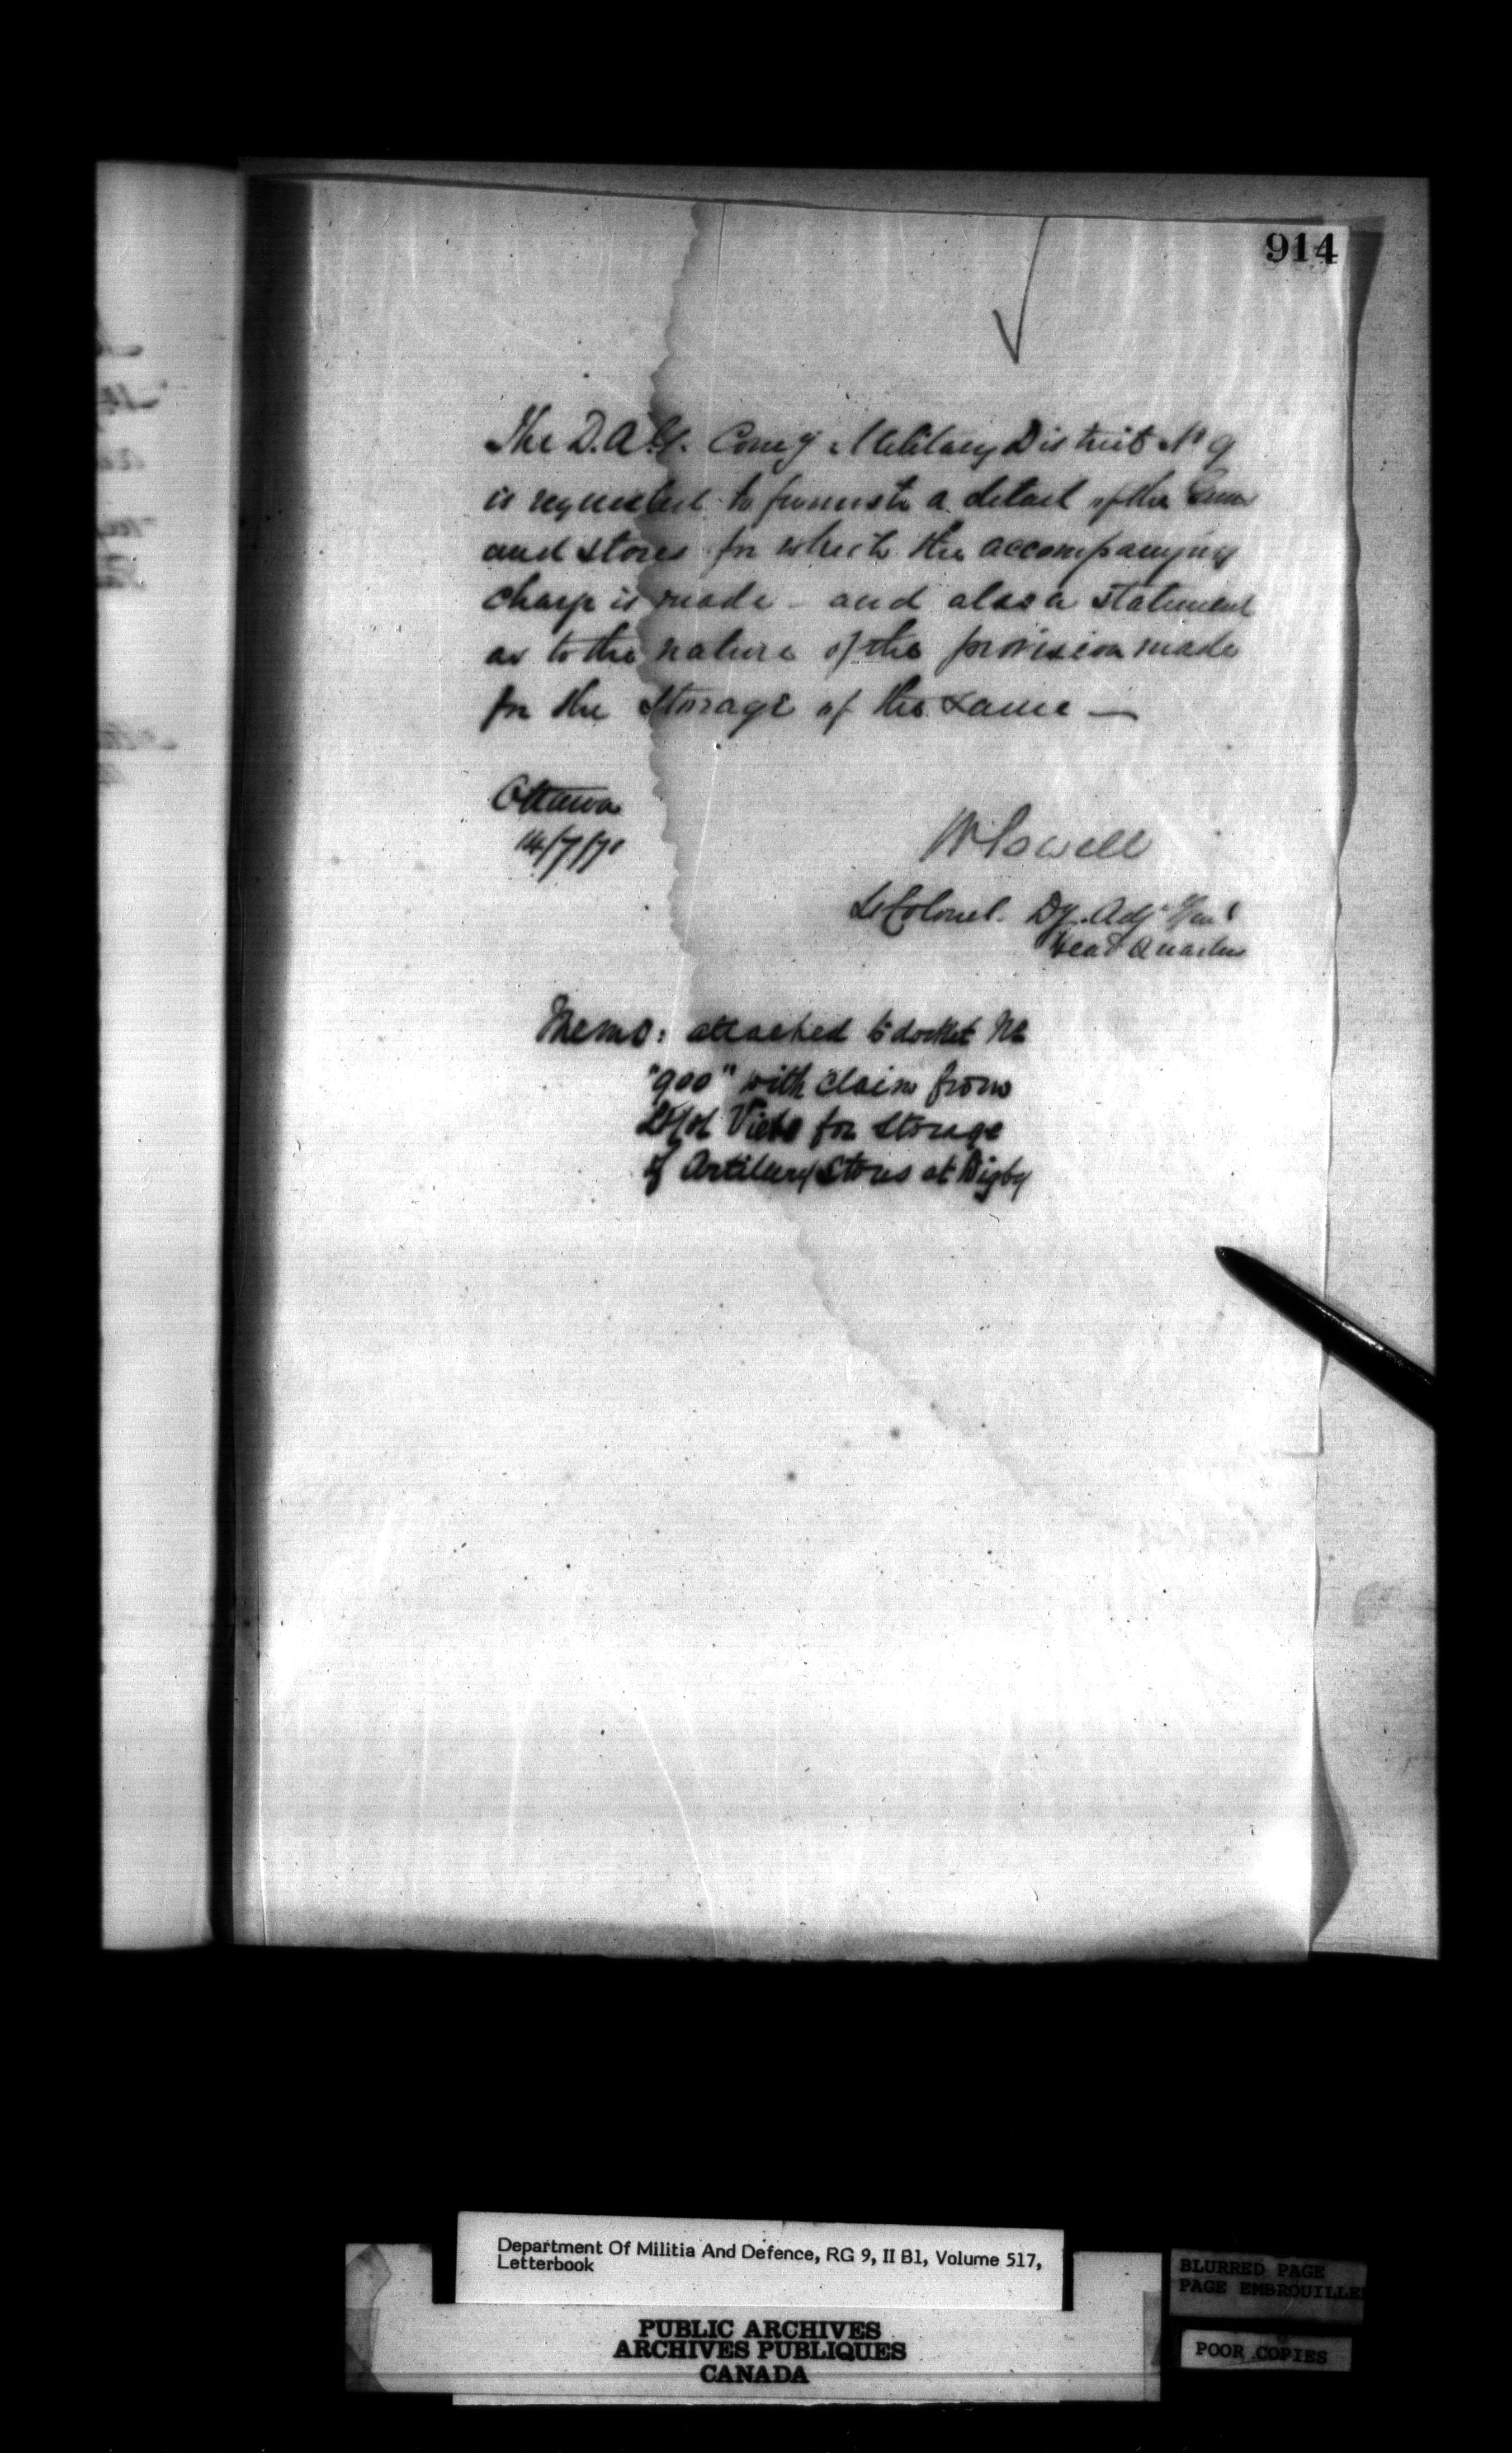 914
The D.A.G. Comg Military District No 9
is requested to furnish a detail of the Guns
and stores for which the accompanying
charge is made – and also a statement
as to the nature of the provision made
for the storage of the same —
Ottawa
14/7/71
W Powell
Lt Colonel. Dy. Adjt Genl
Head Quarters
Memo: attached to docket No
"900" with claim from
Lt Col for storage
of Artillery Stores at Digby
Department Of Militia And Defence, RG 9, II B1, Volume 517,
Letterbook
PUBLIC ARCHIVES
ARCHIVES PUBLIQUES
CANADA
BLURRED PAGE
PAGE EMBROUILLE
POOR COPIES